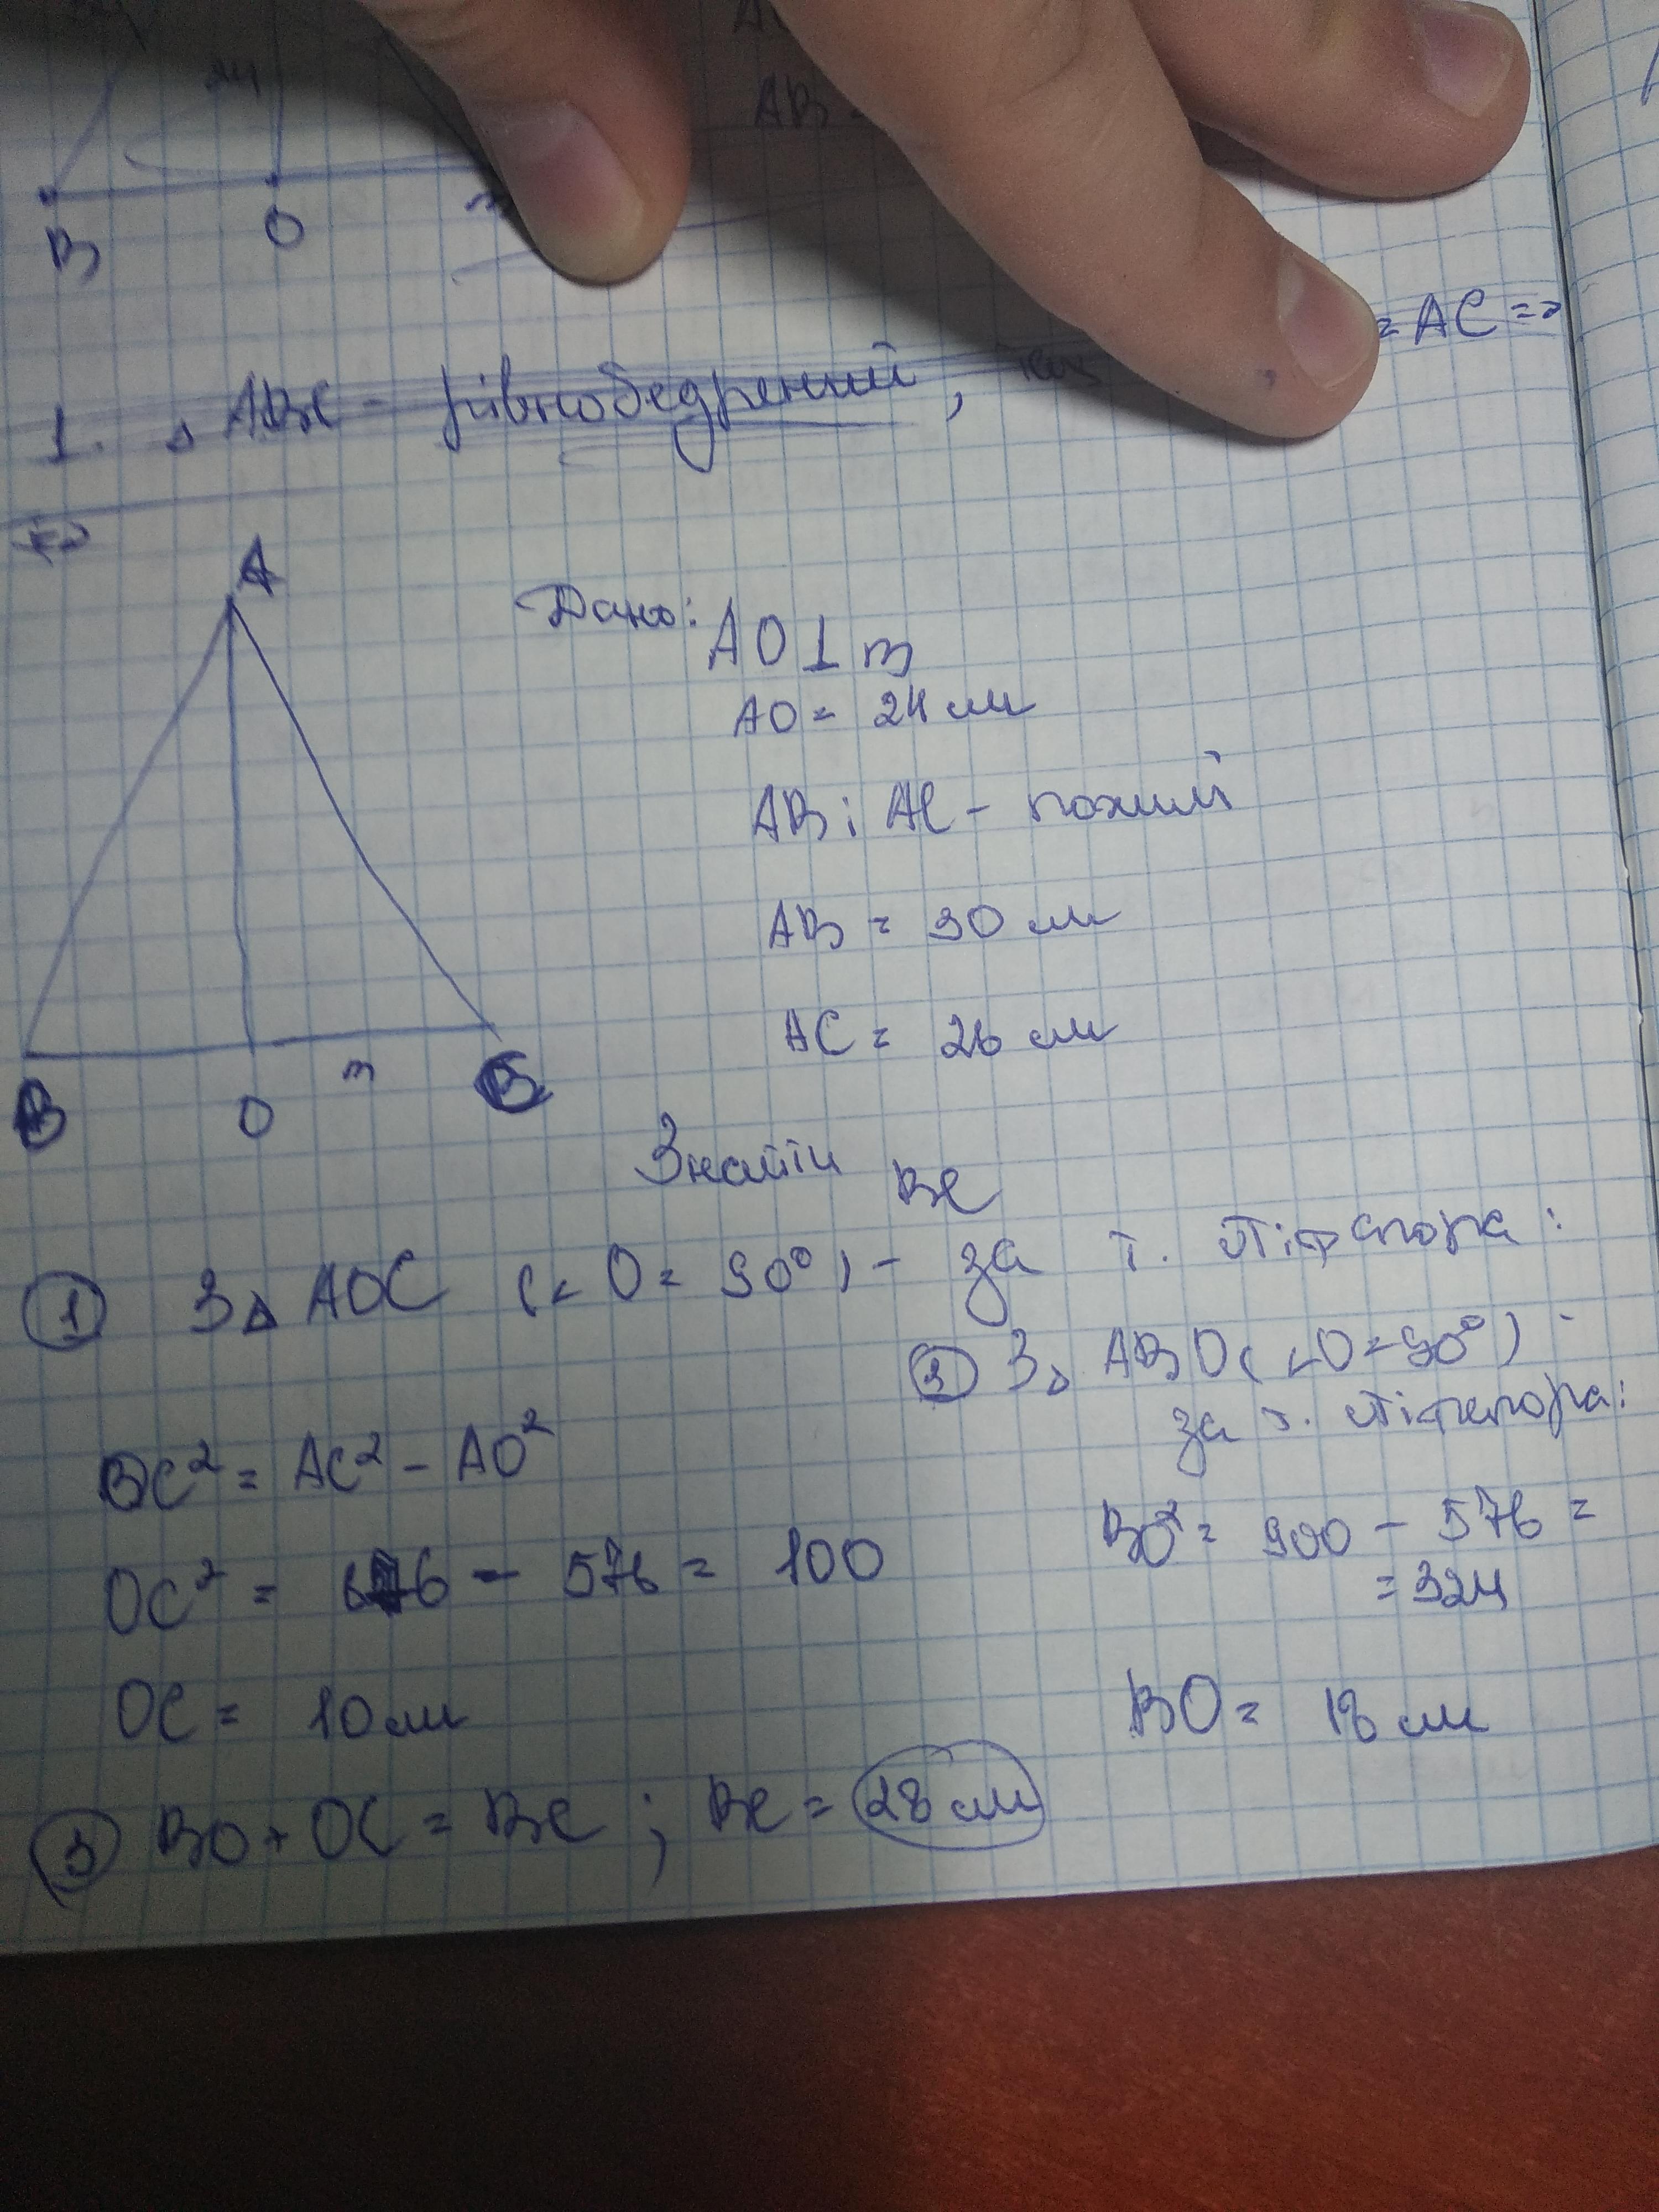 24
A
AB =
B O m
= AC =>
1. △ ABC - рівнобедрений,
=>
A
Дано: AO ⊥ m
AO = 24 см
AB і AC - похилі
AB = 30 см
AC = 26 см
B O m C
Знайти BC
① З △ AOC (∠O = 90°) - за т. Піфагора:
OC² = AC² - AO²
OC² = 676 - 576 = 100
OC = 10 см
② З △ ABO (∠O = 90°)
за т. Піфагора:
BO² = 900 - 576 =
= 324
BO = 18 см
③ BO + OC = BC ; BC = 28 см